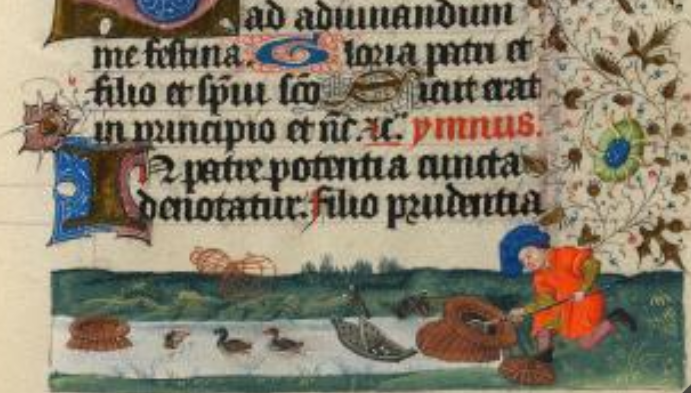 ad adiuuandum
me festina. Gloria patri et
filio et sp̄ui sc̄o Sicut erat
in principio et nc̄. ⁊c. ymnus.
IN patre potentia cuncta
denotatur. filio prudentia